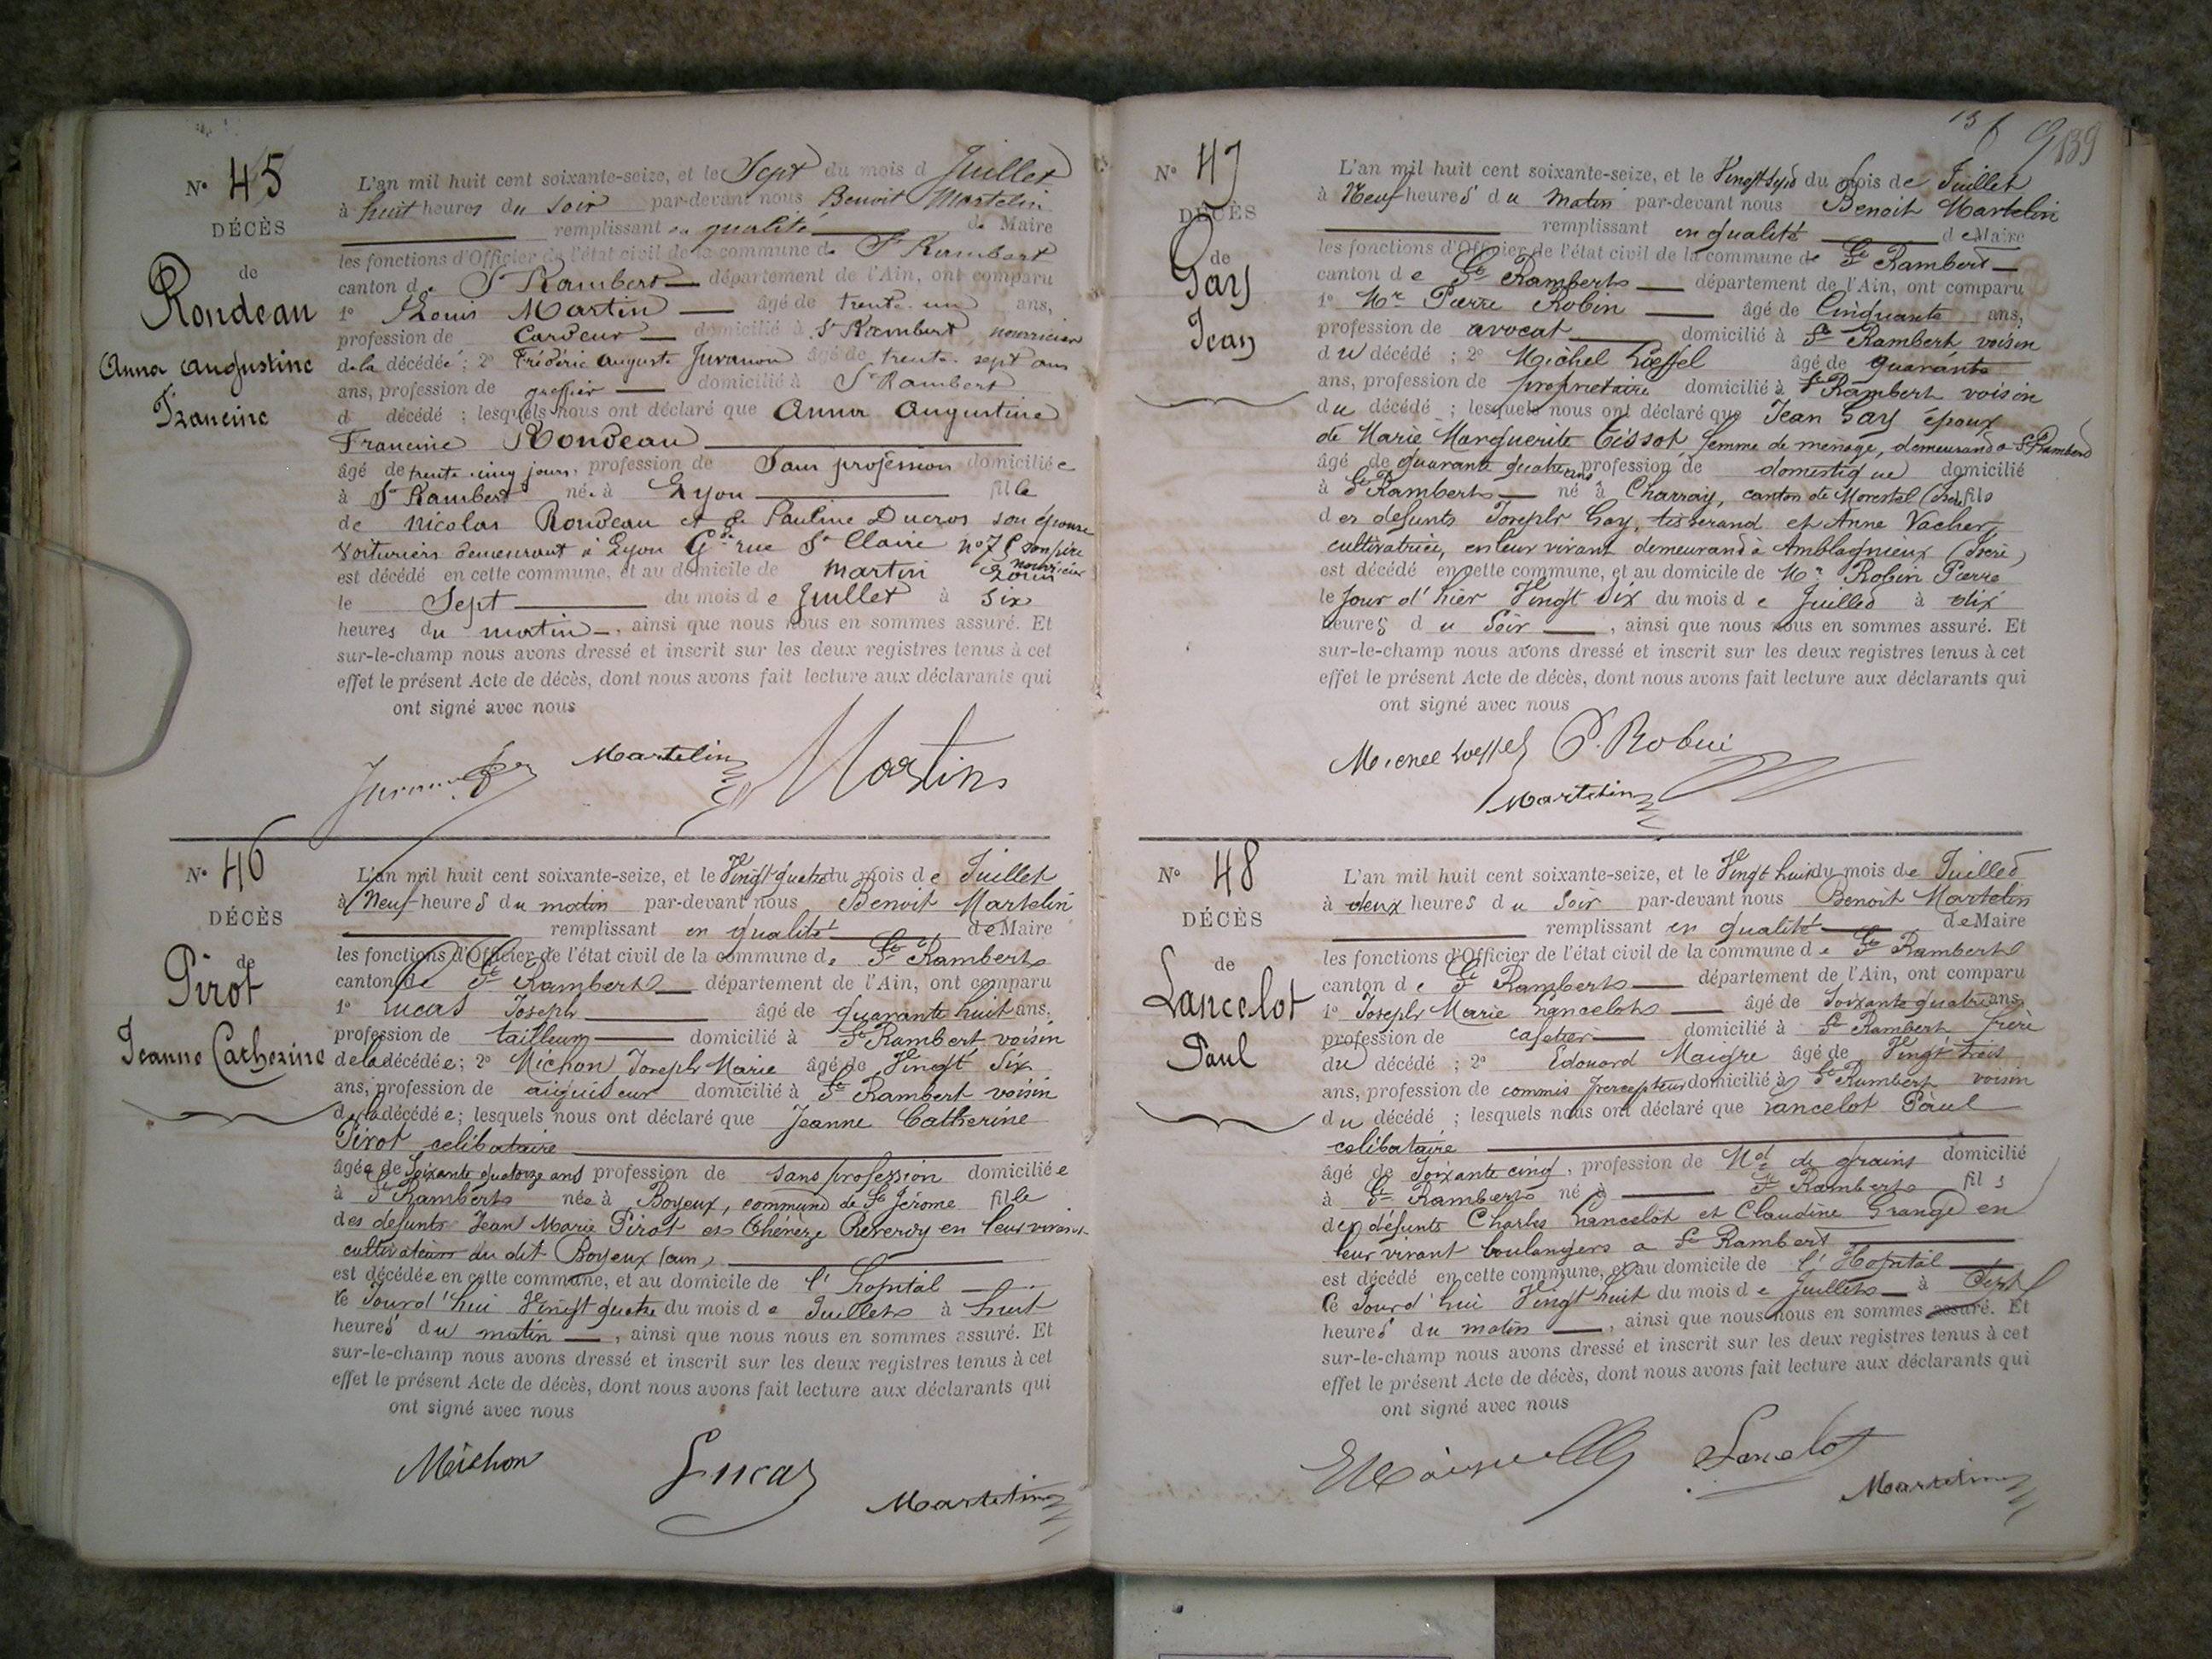 N° 45
DÉCÈS
de
Rondeau
Anna Augustine
Francine
L'an mil huit cent soixante-seize, et le Sept du mois d Juillet
à huit heures du soir par-devant nous Benoit Martelin
remplissant en qualité de Maire
les fonctions d'Officier de l'état civil de la commune de St Rambert
canton de St Rambert département de l'Ain, ont comparu
1° Louis Martin âgé de trente-un ans,
profession de Cardeur domicilié à St Rambert nourricier
de la décédée; 2° Frédéric Auguste Juvanon âgé de trente-sept ans
ans, profession de greffier domicilié à St Rambert
d décédé ; lesquels nous ont déclaré que Anna Augustine
Francine Rondeau
âgé de trente-cinq jours, profession de Sans profession domiciliée
à St Rambert née à Lyon fille
de Nicolas Rondeau et de Pauline Ducros son épouse
voituriers demeurant à Lyon Gde rue St Claire n° 75 son père
est décédé en cette commune, et au domicile de Martin Louis nourricier
le Sept du mois de Juillet à Six
heures du matin, ainsi que nous nous en sommes assuré. Et
sur-le-champ nous avons dressé et inscrit sur les deux registres tenus à cet
effet le présent Acte de décès, dont nous avons fait lecture aux déclarants qui
ont signé avec nous
Martelin Martin
N° 46
DÉCÈS
de
Pirot
Jeanne Catherine
L'an mil huit cent soixante-seize, et le Vingt quatre du mois de Juillet
à Neuf heures du matin par-devant nous Benoit Martelin
remplissant en qualité de Maire
les fonctions d'Officier de l'état civil de la commune de St Rambert
canton de St Rambert département de l'Ain, ont comparu
1° Lucas Joseph âgé de quarante huit ans,
profession de tailleur domicilié à St Rambert voisin
de la décédée; 2° Michon Joseph Marie âgé de Vingt Six
ans, profession de aiguiseur domicilié à St Rambert voisin
de la décédée; lesquels nous ont déclaré que Jeanne Catherine
Pirot celibataire
âgée de Soixante quatorze ans profession de sans profession domiciliée
à St Rambert née à Boyeux, commune de St Jérome fille
des defunts Jean Marie Pirot et Thérèze Reverdy en leur vivant
cultivateurs du dit Boyeux (ain)
est décédée en cette commune, et au domicile de l'hopital
le Jourd'hui Vingt quatre du mois de Juillet à huit
heures du matin, ainsi que nous nous en sommes assuré. Et
sur-le-champ nous avons dressé et inscrit sur les deux registres tenus à cet
effet le présent Acte de décès, dont nous avons fait lecture aux déclarants qui
ont signé avec nous
Michon Lucas Martelin
139
N° 47
DÉCÈS
de
Gay
Jean
L'an mil huit cent soixante-seize, et le Vingt Sept du mois de Juillet
à Neuf heures du matin par-devant nous Benoit Martelin
remplissant en qualité de Maire
les fonctions d'Officier de l'état civil de la commune de St Rambert
canton de St Rambert département de l'Ain, ont comparu
1° Mr Pierre Robin âgé de Cinquante ans,
profession de avocat domicilié à St Rambert voisin
du décédé ; 2° Michel Lœffel âgé de quarante
ans, profession de propriétaire domicilié à St Rambert voisin
du décédé ; lesquels nous ont déclaré que Jean Gay époux
de Marie Marguerite Tissot femme de menage, demeurand a St Rambert
âgé de quarante quatre ans profession de domestique domicilié
à St Rambert né à Charray, canton de Morestel (Isère) fils
des defunts Joseph Gay, tisserand et Anne Vacher,
cultivatrice, en leur vivant demeurand à Amblagnieux (Isère)
est décédé en cette commune, et au domicile de Mr Robin Pierre
le Jour d'hier Vingt Six du mois de Juillet à dix
heures du Soir, ainsi que nous nous en sommes assuré. Et
sur-le-champ nous avons dressé et inscrit sur les deux registres tenus à cet
effet le présent Acte de décès, dont nous avons fait lecture aux déclarants qui
ont signé avec nous
Michel Lœffel P. Robin
Martelin
N° 48
DÉCÈS
de
Lancelot
Paul
L'an mil huit cent soixante-seize, et le Vingt huit du mois de Juillet
à deux heures du Soir par-devant nous Benoit Martelin
remplissant en qualité de Maire
les fonctions d'Officier de l'état civil de la commune de St Rambert
canton de St Rambert département de l'Ain, ont comparu
1° Joseph Marie Lancelot âgé de Soixante quatre ans,
profession de cafetier domicilié à St Rambert frère
du décédé ; 2° Edouard Maigre âgé de Vingt trois
ans, profession de commis percepteur domicilié à St Rambert voisin
du décédé ; lesquels nous ont déclaré que Lancelot Paul
celibataire
âgé de Soixante cinq, profession de Md de grains domicilié
à St Rambert né à St Rambert fils
des défunts Charles Lancelot et Claudine Grange en
leur vivant boulangers a St Rambert
est décédé en cette commune, et au domicile de l'Hopital
le Jourd'hui Vingt huit du mois de Juillet à Sept
heures du matin, ainsi que nous nous en sommes assuré. Et
sur-le-champ nous avons dressé et inscrit sur les deux registres tenus à cet
effet le présent Acte de décès, dont nous avons fait lecture aux déclarants qui
ont signé avec nous
Lancelot Martelin